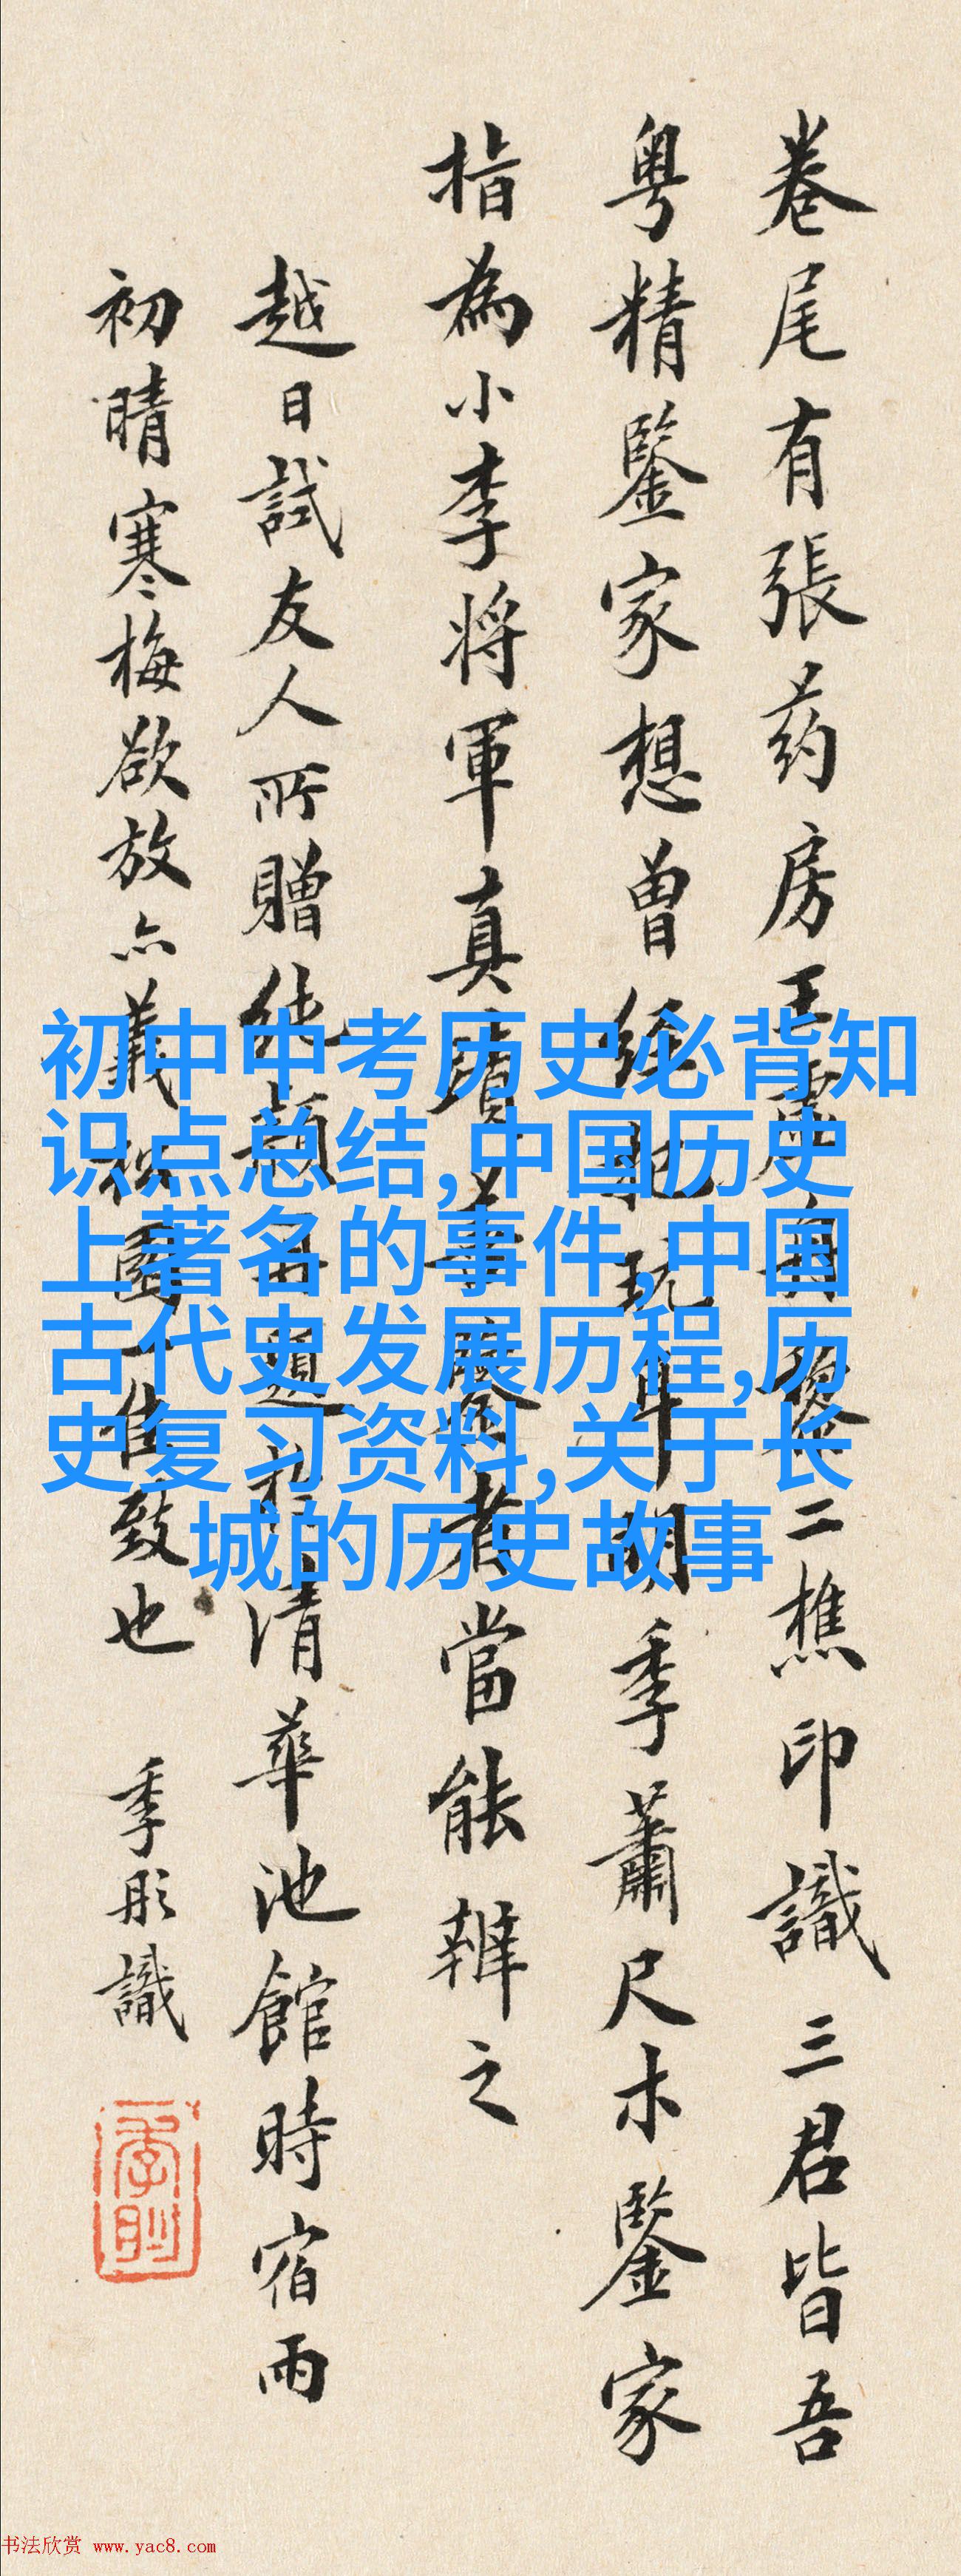 卷尾有張药房王
二樵印識三君皆吾
粤精鑒家想曾經
玩
明季蕭尺木鑒家
指為小李將軍真蹟
者當能辨之
越日試友人所贈
題於清華池館時宿雨
初晴寒梅欲放亦
一佳致也
季彤識
初中中考历史必背知
识点总结,中国历史
上著名的事件,中国
古代史发展历程,历
史复习资料,关于长
城的历史故事
书法欣赏 www.yac8.com